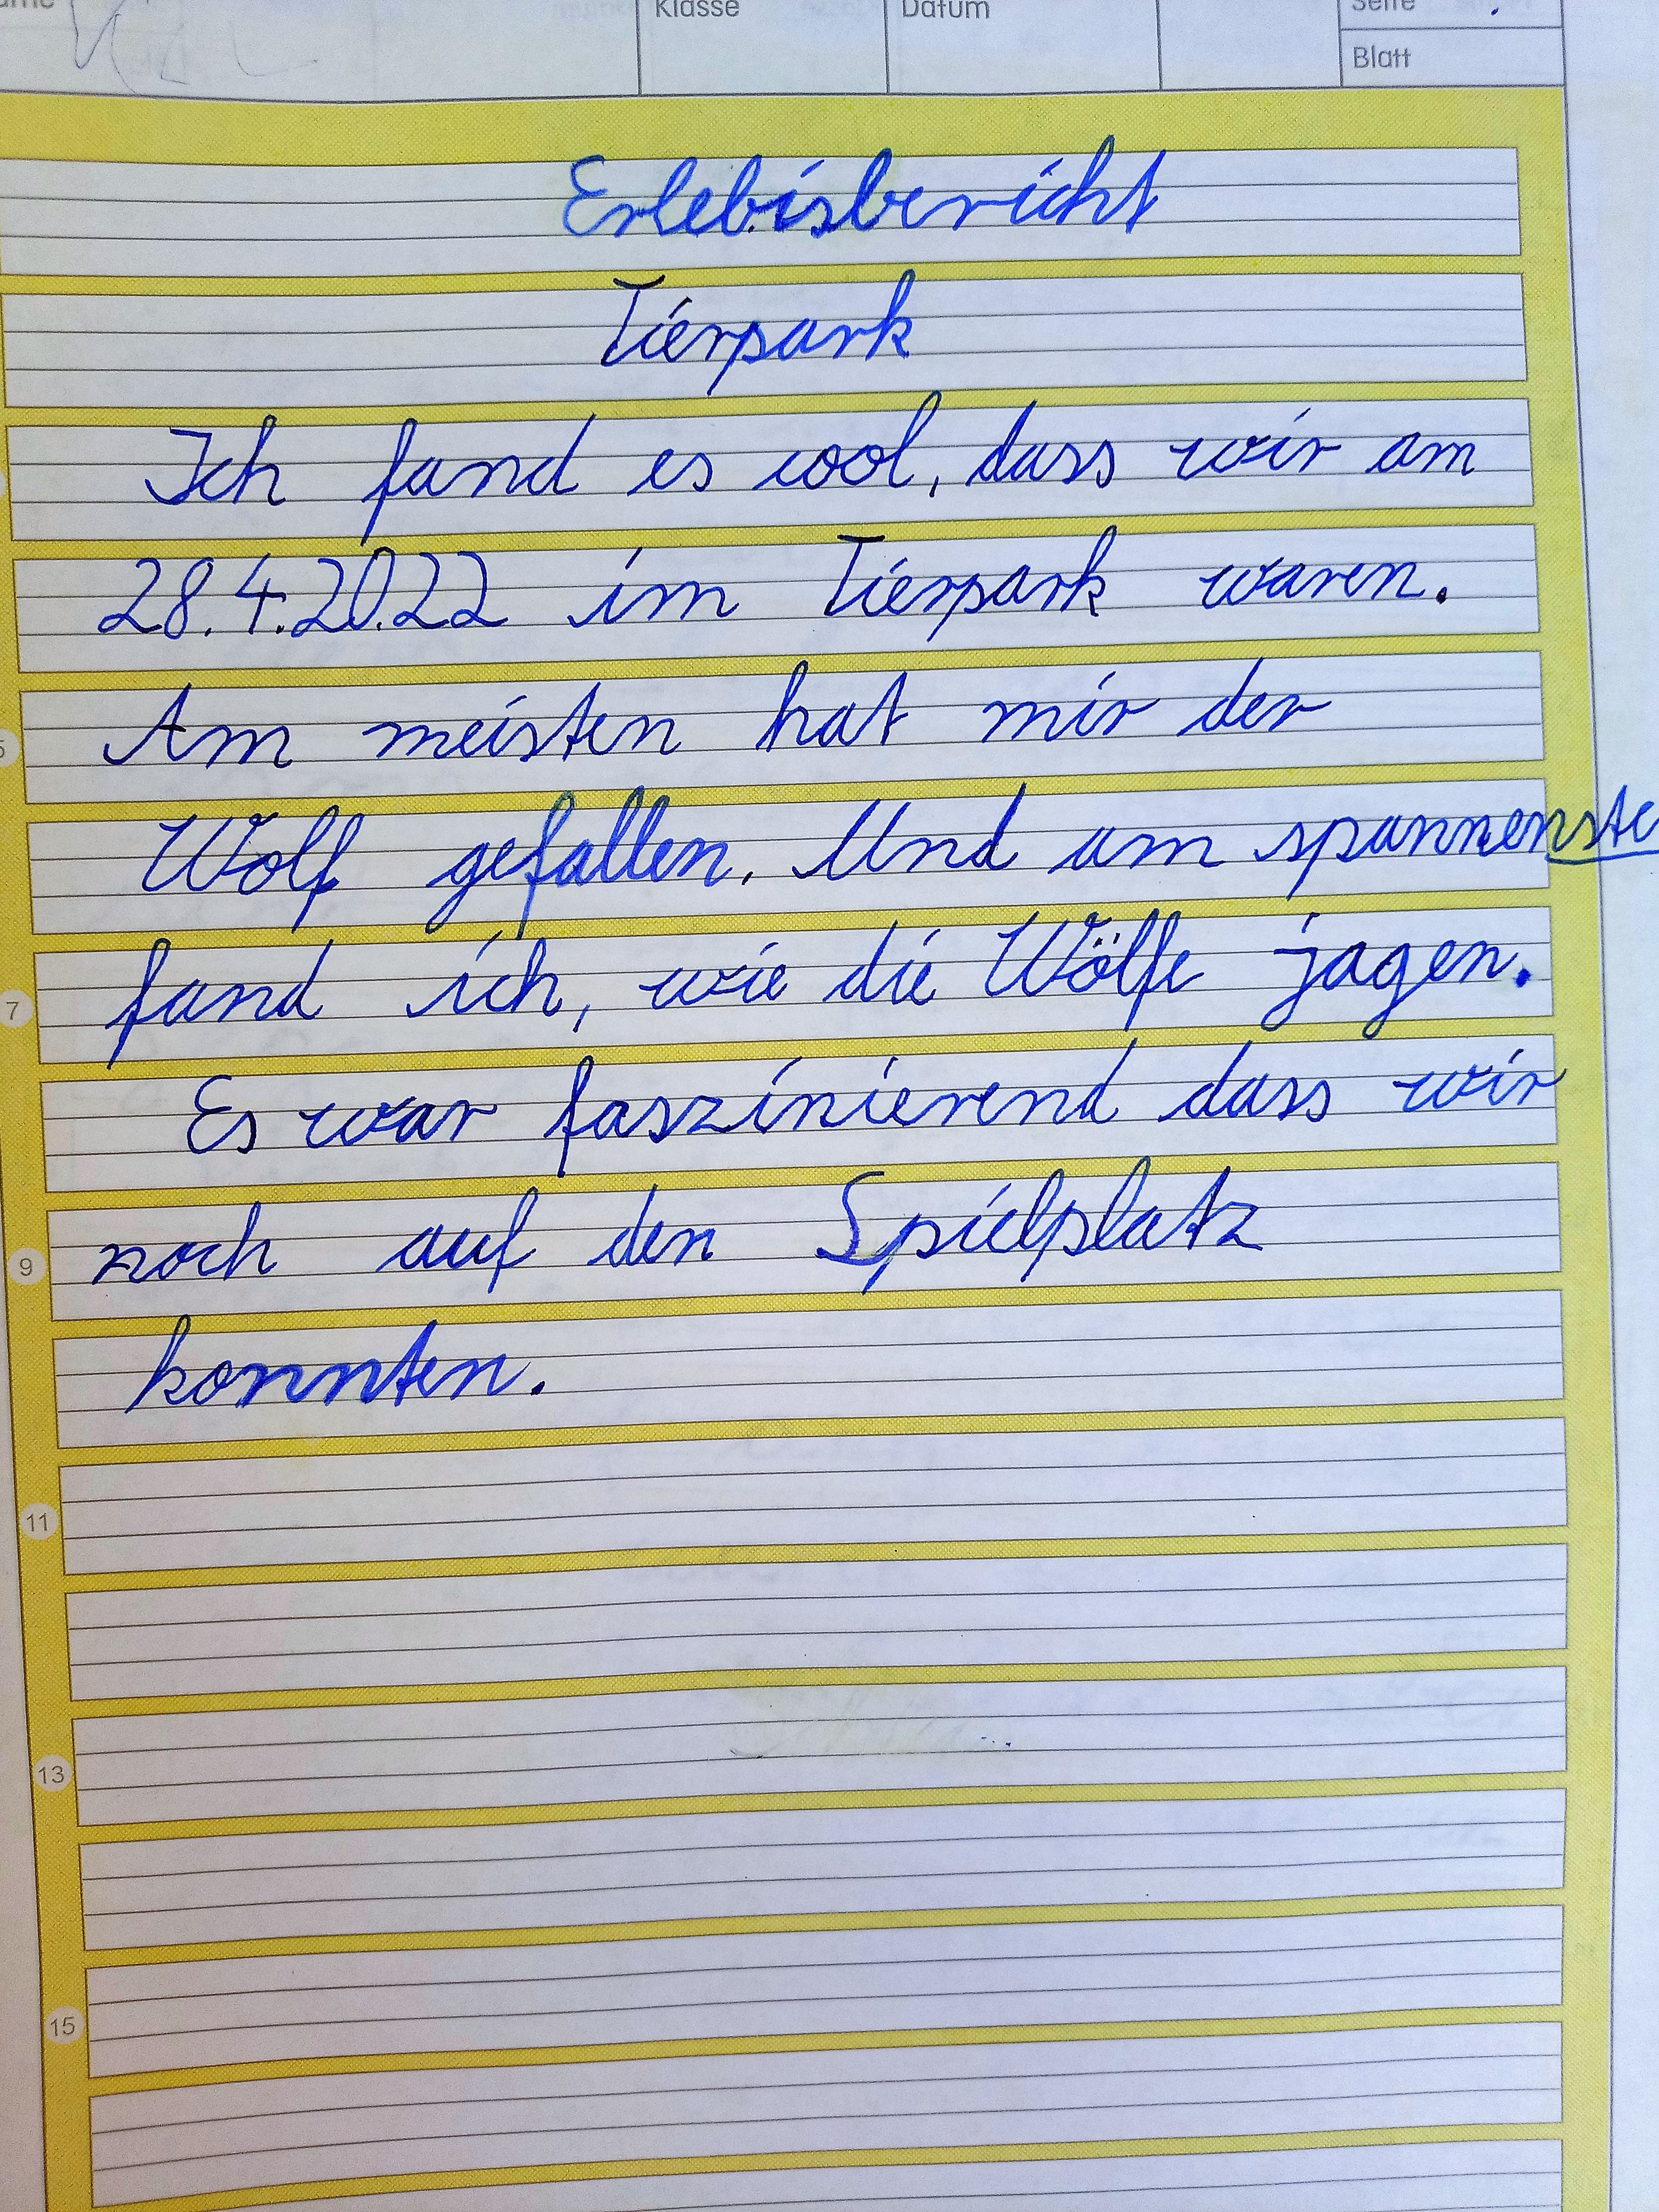 Klasse
Datum
Seite
Blatt
Erlebisbericht
Tierpark
Ich fand es cool, dass wir am
28.4.2022 im Tierpark waren.
Am meisten hat mir der
Wolf gefallen. Und am spannenste
fand ich, wie die Wölfe jagen.
7
Es war faszinierend dass wir
noch auf den Spielplatz
9
konnten.
11
13
15